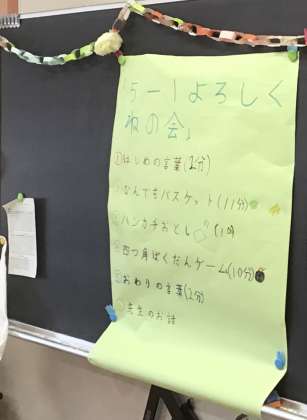 「5-1よろしく
ねの会」
①はじめの言葉(2分)
②なんでもバスケット(11分)
③ハンカチおとし
④四つ身ばくだんゲーム(10分)
⑤おわりの言葉(2分)
⑥先生のお話